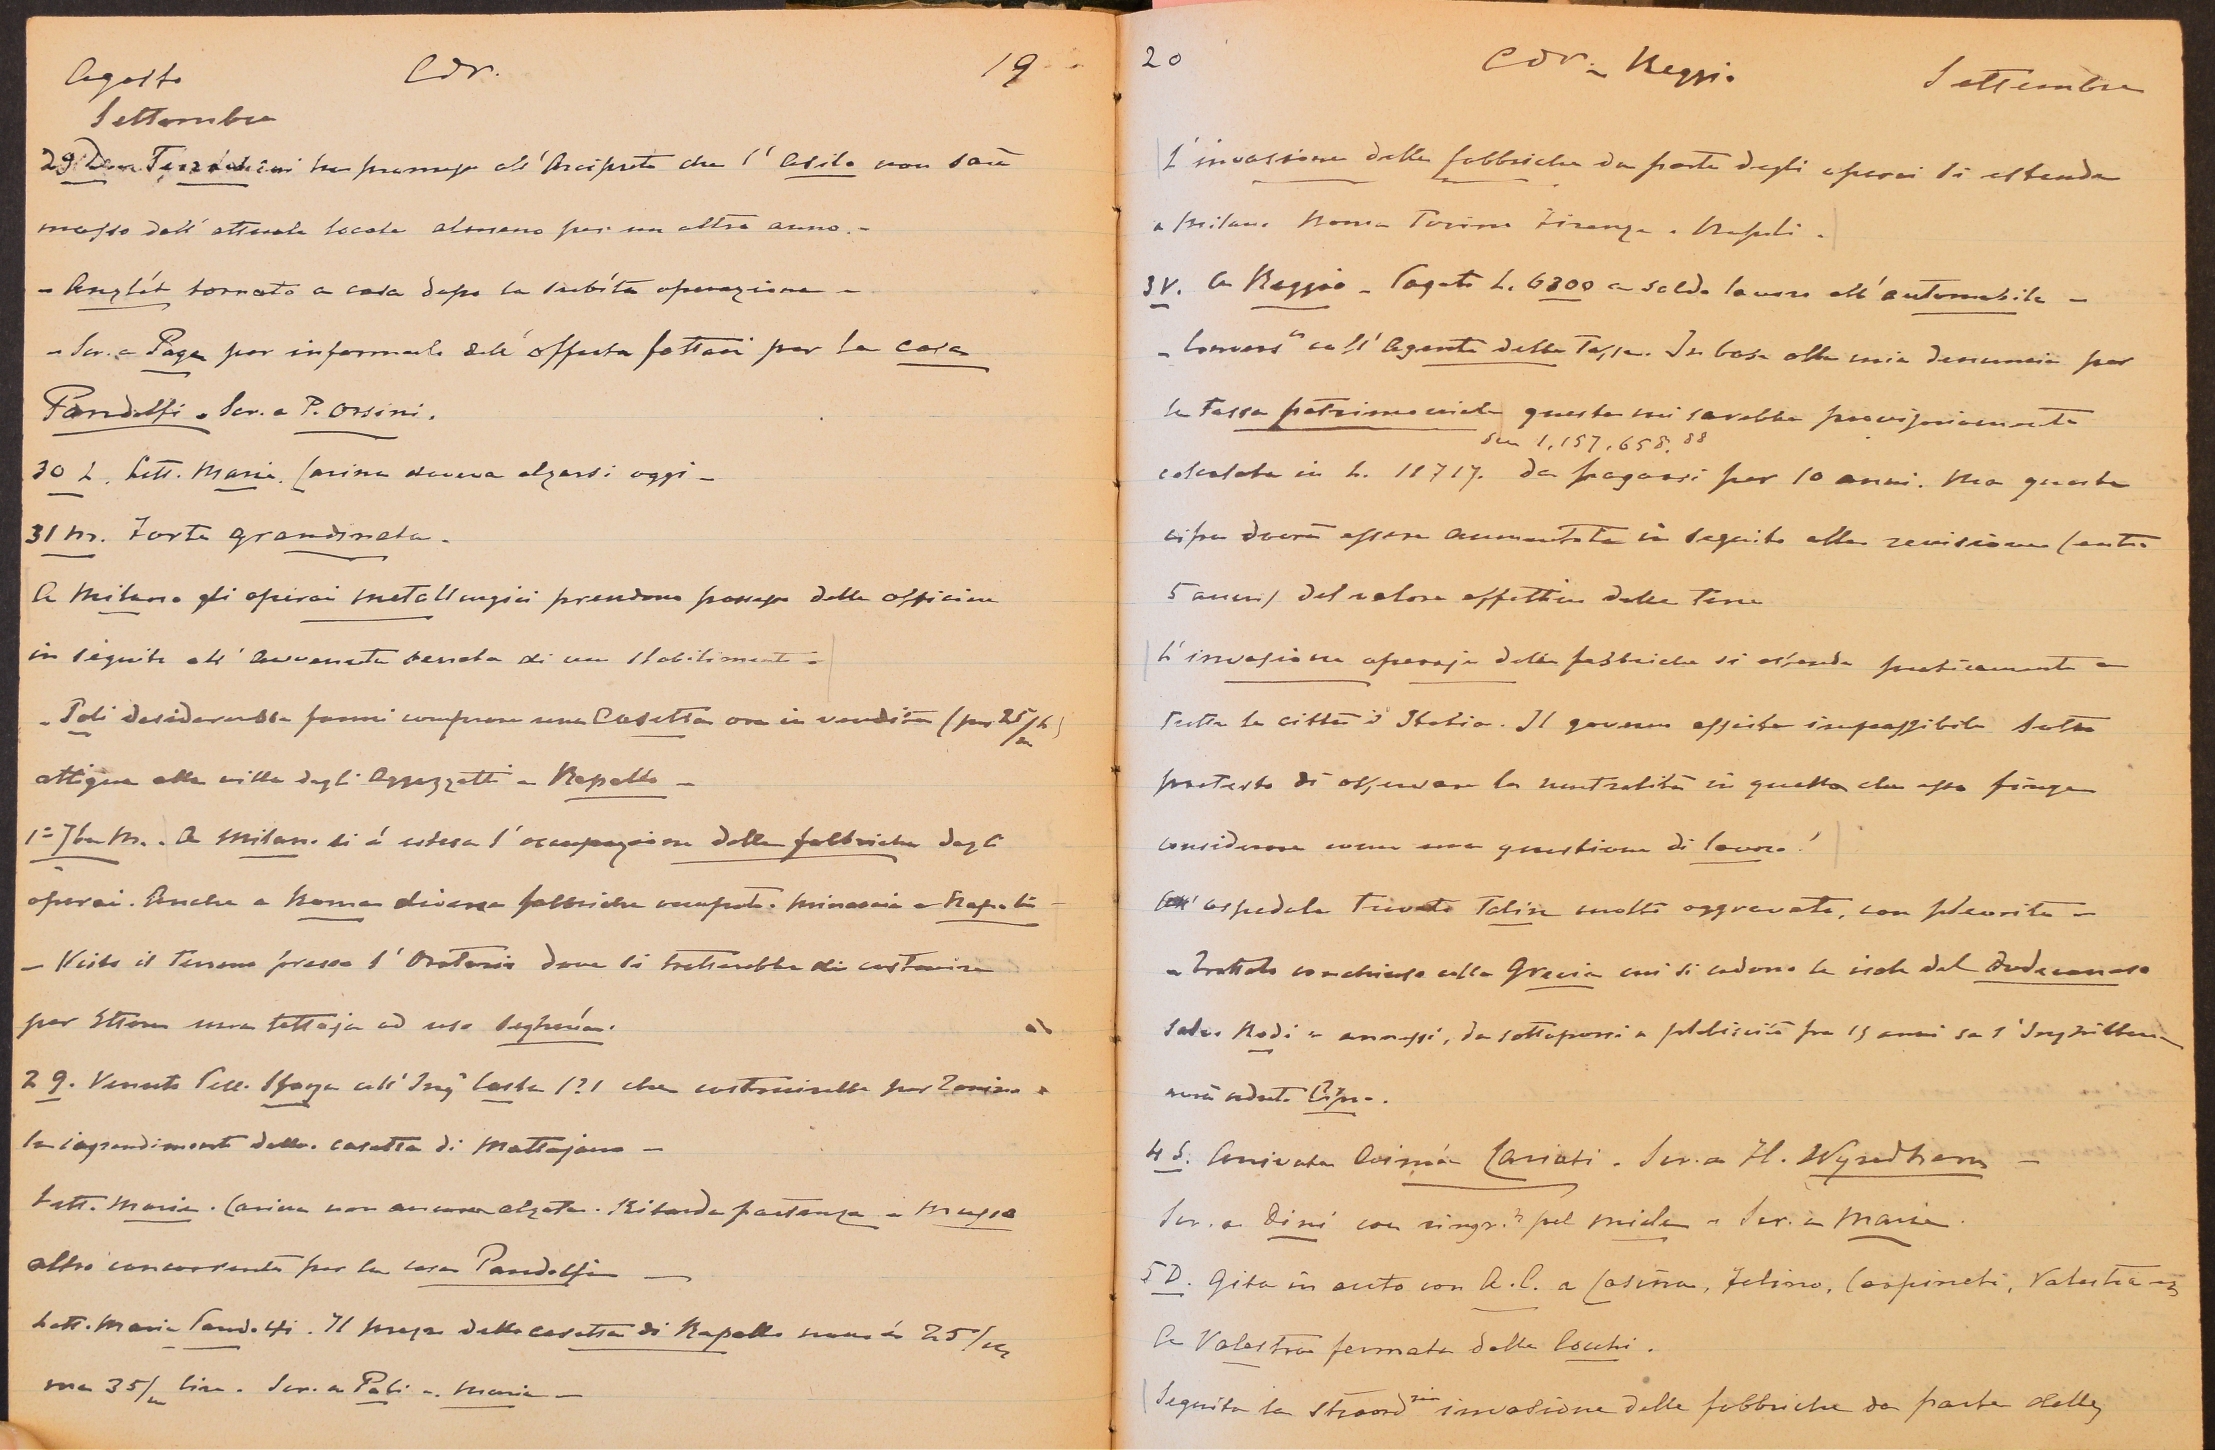 Agosto Cdr. 19
Settembre
29 D. Don Terrachini ha promesso all'Arciprete che l'Asilo non sarà
mosso dall'attuale locale almeno per un altro anno. -
- tornato a casa dopo la subíta operazione -
- Scr. a Paga per informarlo dell'offerta fattami per la casa
Pandolfi. Scr. a P. Orsini.
30 L. Lett. Maria. Carina doveva alzarsi oggi -
31 M. Forte grandinata.
A Milano gli operai metallurgici prendono possesso delle officine
in seguito all'avvenuta serrata di uno stabilimento -
- Poli desidererebbe farmi comprare una Casetta ora in vendita (per 25/m L)
attigua alla villa degli Aggazzotti a Rapallo -
1° 7bre M. A Milano si è estesa l'occupazione delle fabbriche dagli
operai. Anche a Roma diverse fabbriche occupate. Minaccia a Napoli -
- Visto il terreno presso l'Oratorio dove si tratterebbe di costruire
per Ettore una tettoja ad uso segheria.
2 g. Venuto Pell. Sforza coll'Ing. Costa (?) che costruirebbe per Zonino
la ingrandimento della casetta di Mattajano -
Lett. Maria. Carina non ancora alzata. Ritarda partenza -
altro concorrente per la casa Pandolfi -
Lett. Maria Pandolfi. Il prezzo della casetta di Rapallo non è 25/m
ma 35/m lire. Scr. a Poli a Maria -
20 Cdr. - Reggio Settembre
L'invasione delle fabbriche da parte degli operai si estende
a Milano Roma Torino Firenze e Napoli.
3 V. A Reggio - Pagate L. 6300 a saldo lavoro all'automobile -
- Convers.ne coll'Agente delle Tasse. In base alla mia denuncia per
la tassa patrimoniale questa mi sarebbe provvisoriamente
su 1,157,658.88
calcolata in L. 11717. da pagarsi per 10 anni. Ma questa
cifra dovrà essere aumentata in seguito alla revisione (entro
5 anni) del valore effettivo delle terre
L'invasione operaja delle fabbriche si estende praticamente a
tutte le città d'Italia. Il governo assiste impassibile sotto
pretesto di osservare la neutralità in quella che esso finge
considerare come una questione di lavoro!
All'ospedale trovato Talin molto aggravato, con pleurite -
- Trattato conchiuso colla Grecia cui si cedono le isole del Dodecanneso
salvo Rodi e annessi, da sottoporsi a plebiscito fra 15 anni se l'Inghilterra
avrà ceduto Cipro.
4 S. Arrivata Cariati. Scr. a H. Wyndham -
Scr. a Dini con ringr.i pel miele - Scr. a Maria.
5 D. Gita in auto con A.C. a Casina, Felina, Carpineti, Valestra
A Valestra fermata dalle Cocchi.
Seguita la straord.ria invasione delle fabbriche da parte delle